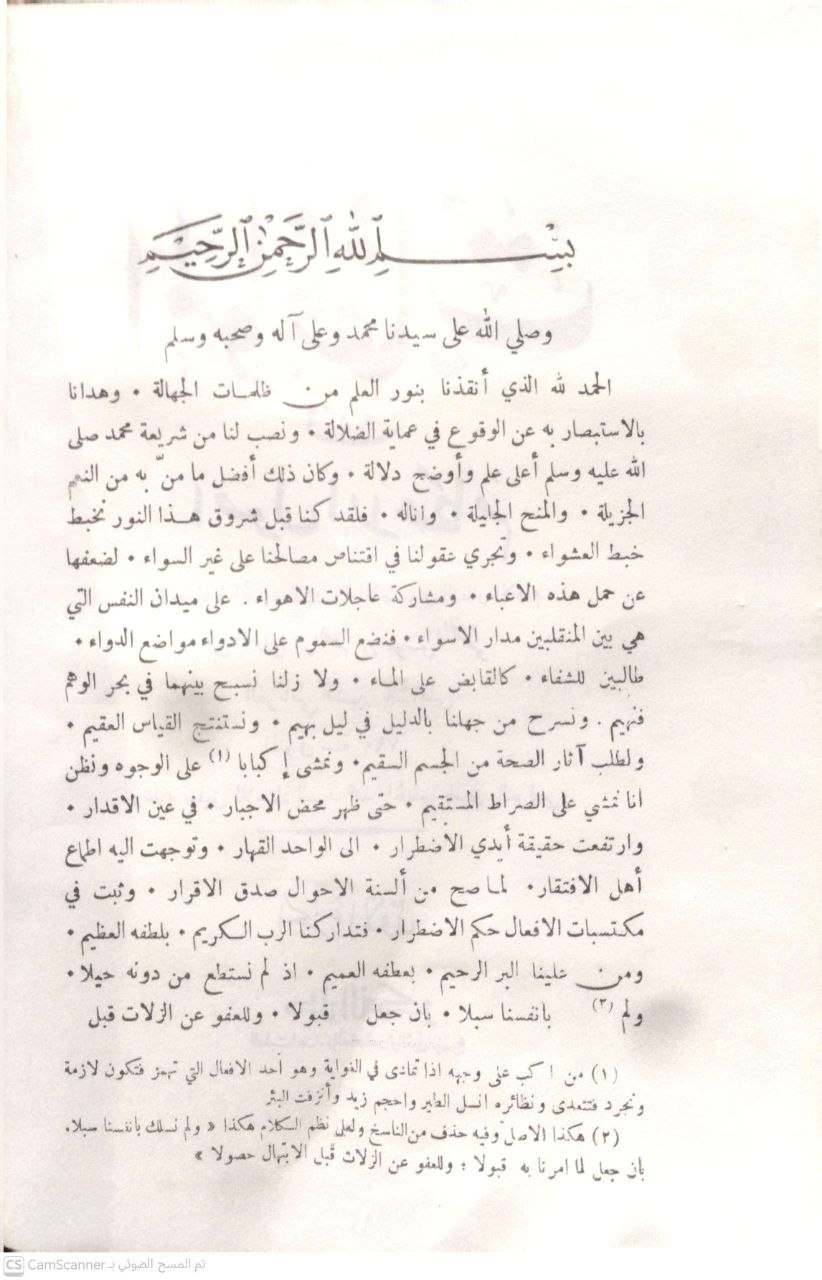 بِسْمِ اللهِ الرَّحْمٰنِ الرَّحِيمِ
وصلي الله على سيدنا محمد وعلى آله وصحبه وسلم
الحمد لله الذي أنقذنا بنور العلم من ظلمات الجهالة • وهدانا
بالاستبصار به عن الوقوع في عماية الضلالة • ونصب لنا من شريعة محمد صلى
الله عليه وسلم أعلى علم وأوضح دلالة • وكان ذلك أفضل ما منّ به من النعم
الجزيلة • والمنح الجليلة • واناله • فلقد كنا قبل شروق هذا النور نخبط
خبط العشواء • وتجري عقولنا في اقتناص مصالحنا على غير السواء • لضعفها
عن حمل هذه الاعباء • ومشاركة عاجلات الاهواء . على ميدان النفس التي
هي بين المنقلبين مدار الاسواء • فنضع السموم على الادواء مواضع الدواء •
طالبين للشفاء • كالقابض على الماء • ولا زلنا نسبح بينهما في بحر الوهم
فنهيم . ونسرح من جهلنا بالدليل في ليل بهيم • ونستنتج القياس العقيم •
ونطلب آثار الصحة من الجسم السقيم • ونمشى إكبابا (١) على الوجوه ونظن
انا نمشي على الصراط المستقيم • حتى ظهر محض الاجبار • في عين الاقدار •
وارتفعت حقيقة أيدي الاضطرار • الى الواحد القهار • وتوجهت اليه اطماع
أهل الافتقار • لما صح من ألسنة الاحوال صدق الاقرار • وثبت في
مكتسبات الافعال حكم الاضطرار • فتداركنا الرب الكريم • بلطفه العظيم •
ومن علينا البر الرحيم • بعطفه العميم • اذ لم نستطع من دونه حيلا •
ولم (٢) بانفسنا سبلا • بان جعل قبولا • وللعفو عن الزلات قبل
(١) من اكب على وجهه اذا تمادى في الغواية وهو أحد الافعال التي تهمز فتكون لازمة
وتجرد فتتعدى ونظائره انسل الطير واحجم زيد وأنزفت البئر
(٢) هكذا الاصل وفيه حذف من الناسخ ولعل نظم الكلام هكذا « ولم نسلك بانفسنا سبلا.
بأن جعل لما امرنا به قبولا ؛ وللعفو عن الزلات قبل الابتهال حصولا »
CS CamScanner تم المسح الضوئي بـ